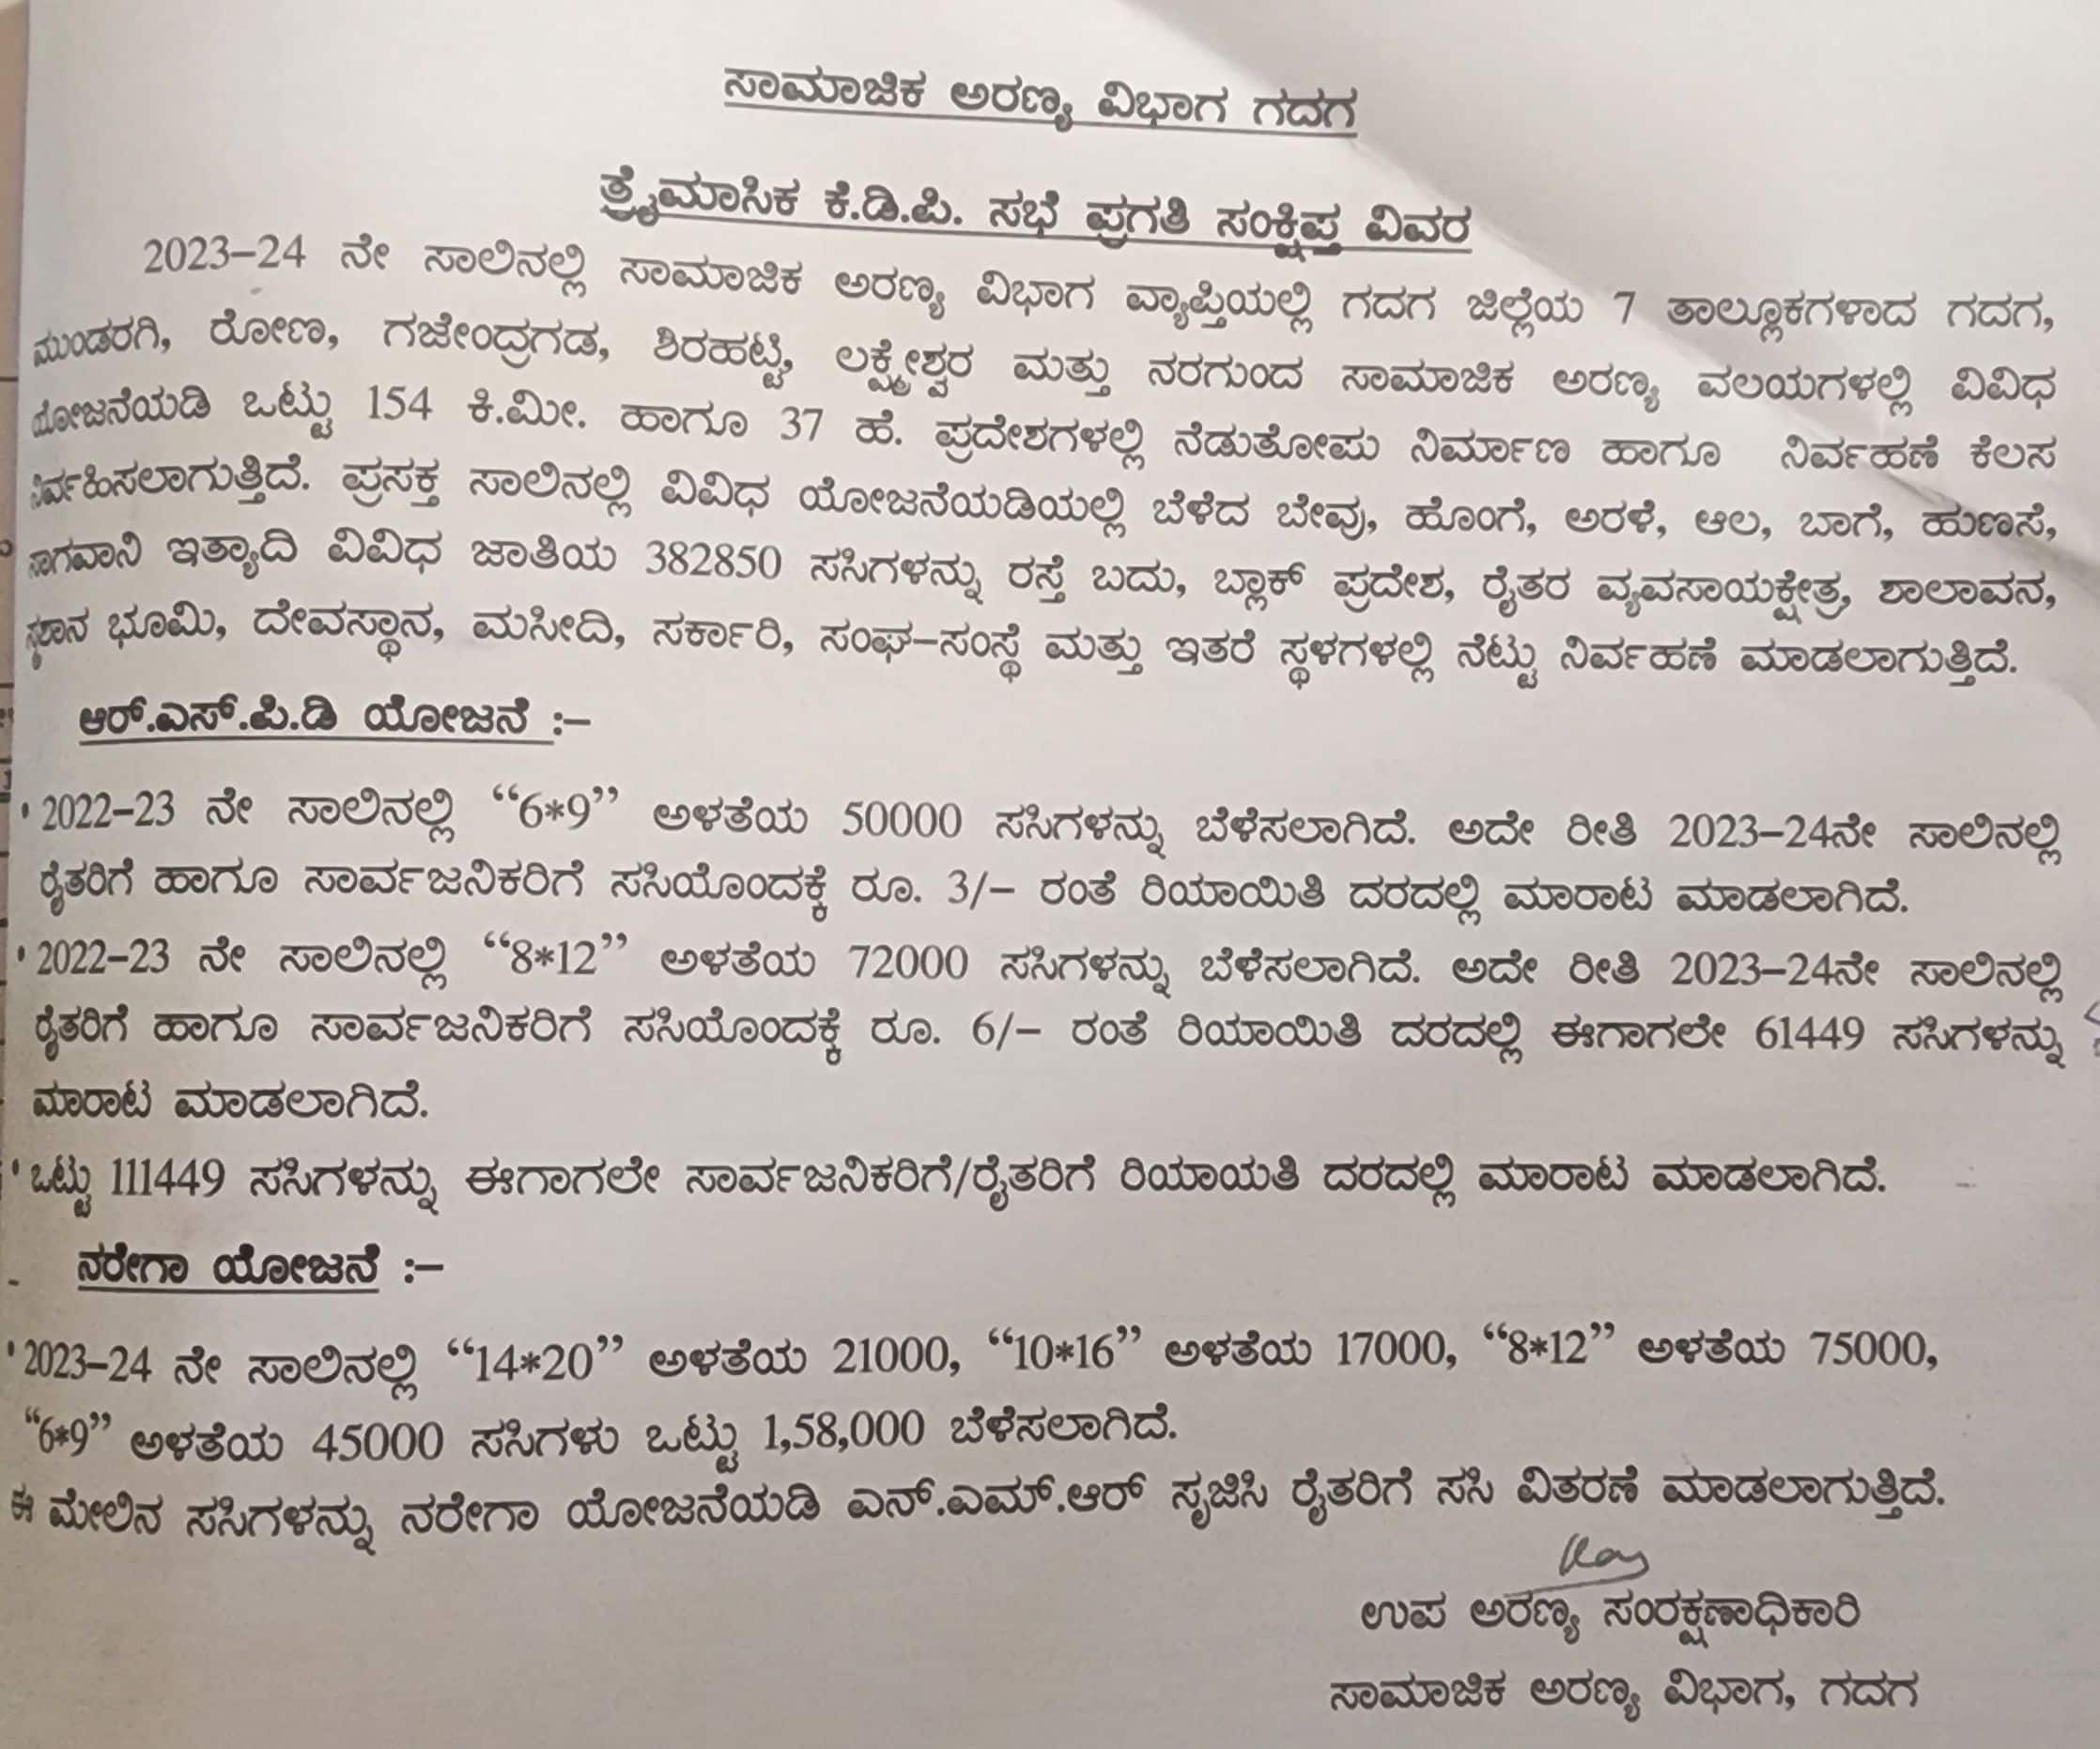 ಸಾಮಾಜಿಕ ಅರಣ್ಯ ವಿಭಾಗ ಗದಗ
ತ್ರೈಮಾಸಿಕ ಕೆ.ಡಿ.ಪಿ. ಸಭೆ ಪ್ರಗತಿ ಸಂಕ್ಷಿಪ್ತ ವಿವರ
2023-24 ನೇ ಸಾಲಿನಲ್ಲಿ ಸಾಮಾಜಿಕ ಅರಣ್ಯ ವಿಭಾಗ ವ್ಯಾಪ್ತಿಯಲ್ಲಿ ಗದಗ ಜಿಲ್ಲೆಯ 7 ತಾಲ್ಲೂಕಗಳಾದ ಗದಗ,
ಮುಂಡರಗಿ, ರೋಣ, ಗಜೇಂದ್ರಗಡ, ಶಿರಹಟ್ಟಿ, ಲಕ್ಷ್ಮೇಶ್ವರ ಮತ್ತು ನರಗುಂದ ಸಾಮಾಜಿಕ ಅರಣ್ಯ ವಲಯಗಳಲ್ಲಿ ವಿವಿಧ
ಯೋಜನೆಯಡಿ ಒಟ್ಟು 154 ಕಿ.ಮೀ. ಹಾಗೂ 37 ಹೆ. ಪ್ರದೇಶಗಳಲ್ಲಿ ನೆಡುತೋಪು ನಿರ್ಮಾಣ ಹಾಗೂ ನಿರ್ವಹಣೆ ಕೆಲಸ
ನಿರ್ವಹಿಸಲಾಗುತ್ತಿದೆ. ಪ್ರಸಕ್ತ ಸಾಲಿನಲ್ಲಿ ವಿವಿಧ ಯೋಜನೆಯಡಿಯಲ್ಲಿ ಬೆಳೆದ ಬೇವು, ಹೊಂಗೆ, ಅರಳೆ, ಆಲ, ಬಾಗೆ, ಹುಣಸೆ,
ಸಾಗವಾನಿ ಇತ್ಯಾದಿ ವಿವಿಧ ಜಾತಿಯ 382850 ಸಸಿಗಳನ್ನು ರಸ್ತೆ ಬದು, ಬ್ಲಾಕ್ ಪ್ರದೇಶ, ರೈತರ ವ್ಯವಸಾಯಕ್ಷೇತ್ರ, ಶಾಲಾವನ,
ಭೂಮಿ, ದೇವಸ್ಥಾನ, ಮಸೀದಿ, ಸರ್ಕಾರಿ, ಸಂಘ-ಸಂಸ್ಥೆ ಮತ್ತು ಇತರೆ ಸ್ಥಳಗಳಲ್ಲಿ ನೆಟ್ಟು ನಿರ್ವಹಣೆ ಮಾಡಲಾಗುತ್ತಿದೆ.
ಆರ್.ಎಸ್.ಪಿ.ಡಿ ಯೋಜನೆ :-
• 2022-23 ನೇ ಸಾಲಿನಲ್ಲಿ “6*9” ಅಳತೆಯ 50000 ಸಸಿಗಳನ್ನು ಬೆಳೆಸಲಾಗಿದೆ. ಅದೇ ರೀತಿ 2023-24ನೇ ಸಾಲಿನಲ್ಲಿ
ರೈತರಿಗೆ ಹಾಗೂ ಸಾರ್ವಜನಿಕರಿಗೆ ಸಸಿಯೊಂದಕ್ಕೆ ರೂ. 3/- ರಂತೆ ರಿಯಾಯಿತಿ ದರದಲ್ಲಿ ಮಾರಾಟ ಮಾಡಲಾಗಿದೆ.
• 2022-23 ನೇ ಸಾಲಿನಲ್ಲಿ “8*12” ಅಳತೆಯ 72000 ಸಸಿಗಳನ್ನು ಬೆಳೆಸಲಾಗಿದೆ. ಅದೇ ರೀತಿ 2023-24ನೇ ಸಾಲಿನಲ್ಲಿ
ರೈತರಿಗೆ ಹಾಗೂ ಸಾರ್ವಜನಿಕರಿಗೆ ಸಸಿಯೊಂದಕ್ಕೆ ರೂ. 6/- ರಂತೆ ರಿಯಾಯಿತಿ ದರದಲ್ಲಿ ಈಗಾಗಲೇ 61449 ಸಸಿಗಳನ್ನು
ಮಾರಾಟ ಮಾಡಲಾಗಿದೆ.
• ಒಟ್ಟು 111449 ಸಸಿಗಳನ್ನು ಈಗಾಗಲೇ ಸಾರ್ವಜನಿಕರಿಗೆ/ರೈತರಿಗೆ ರಿಯಾಯತಿ ದರದಲ್ಲಿ ಮಾರಾಟ ಮಾಡಲಾಗಿದೆ.
ನರೇಗಾ ಯೋಜನೆ :-
• 2023-24 ನೇ ಸಾಲಿನಲ್ಲಿ “14*20” ಅಳತೆಯ 21000, “10*16” ಅಳತೆಯ 17000, “8*12” ಅಳತೆಯ 75000,
“6*9” ಅಳತೆಯ 45000 ಸಸಿಗಳು ಒಟ್ಟು 1,58,000 ಬೆಳೆಸಲಾಗಿದೆ.
ಈ ಮೇಲಿನ ಸಸಿಗಳನ್ನು ನರೇಗಾ ಯೋಜನೆಯಡಿ ಎನ್.ಎಮ್.ಆರ್ ಸೃಜಿಸಿ ರೈತರಿಗೆ ಸಸಿ ವಿತರಣೆ ಮಾಡಲಾಗುತ್ತಿದೆ.
ಉಪ ಅರಣ್ಯ ಸಂರಕ್ಷಣಾಧಿಕಾರಿ
ಸಾಮಾಜಿಕ ಅರಣ್ಯ ವಿಭಾಗ, ಗದಗ